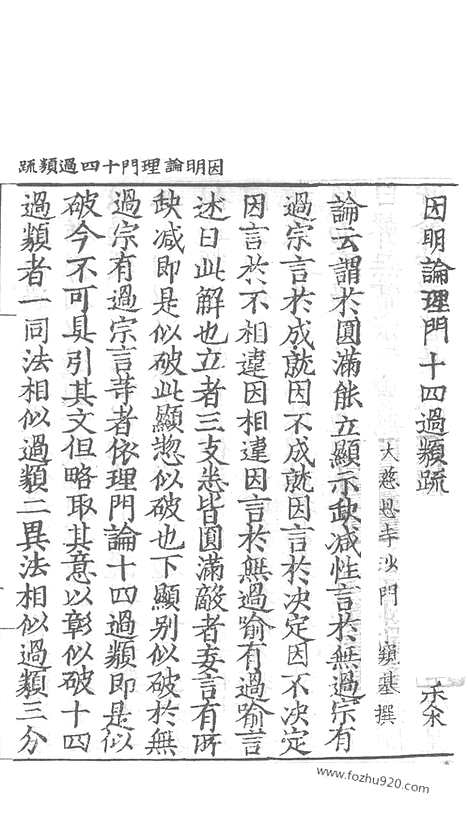 因明論理門十四過類䟽
因明論理門十四過類䟽
大慈恩寺沙門 窺基撰
論云謂於圓滿能立顯示缺减性言於無過宗有
過宗言於成就因不成就因言於决定因不决定
因言於不相違因相違因言於無過喻有過喻言
述曰此解也立者三支悉皆圓滿敵者妄言有所
缺减即是似破此顯惣似破也下顯别似破於無
過宗有過宗言等者依理門論十四過類即是似
破今不可具引其文但略取其意以彰似破十四
過類者一同法相似過類二異法相似過類三分
www.fozhu920.com